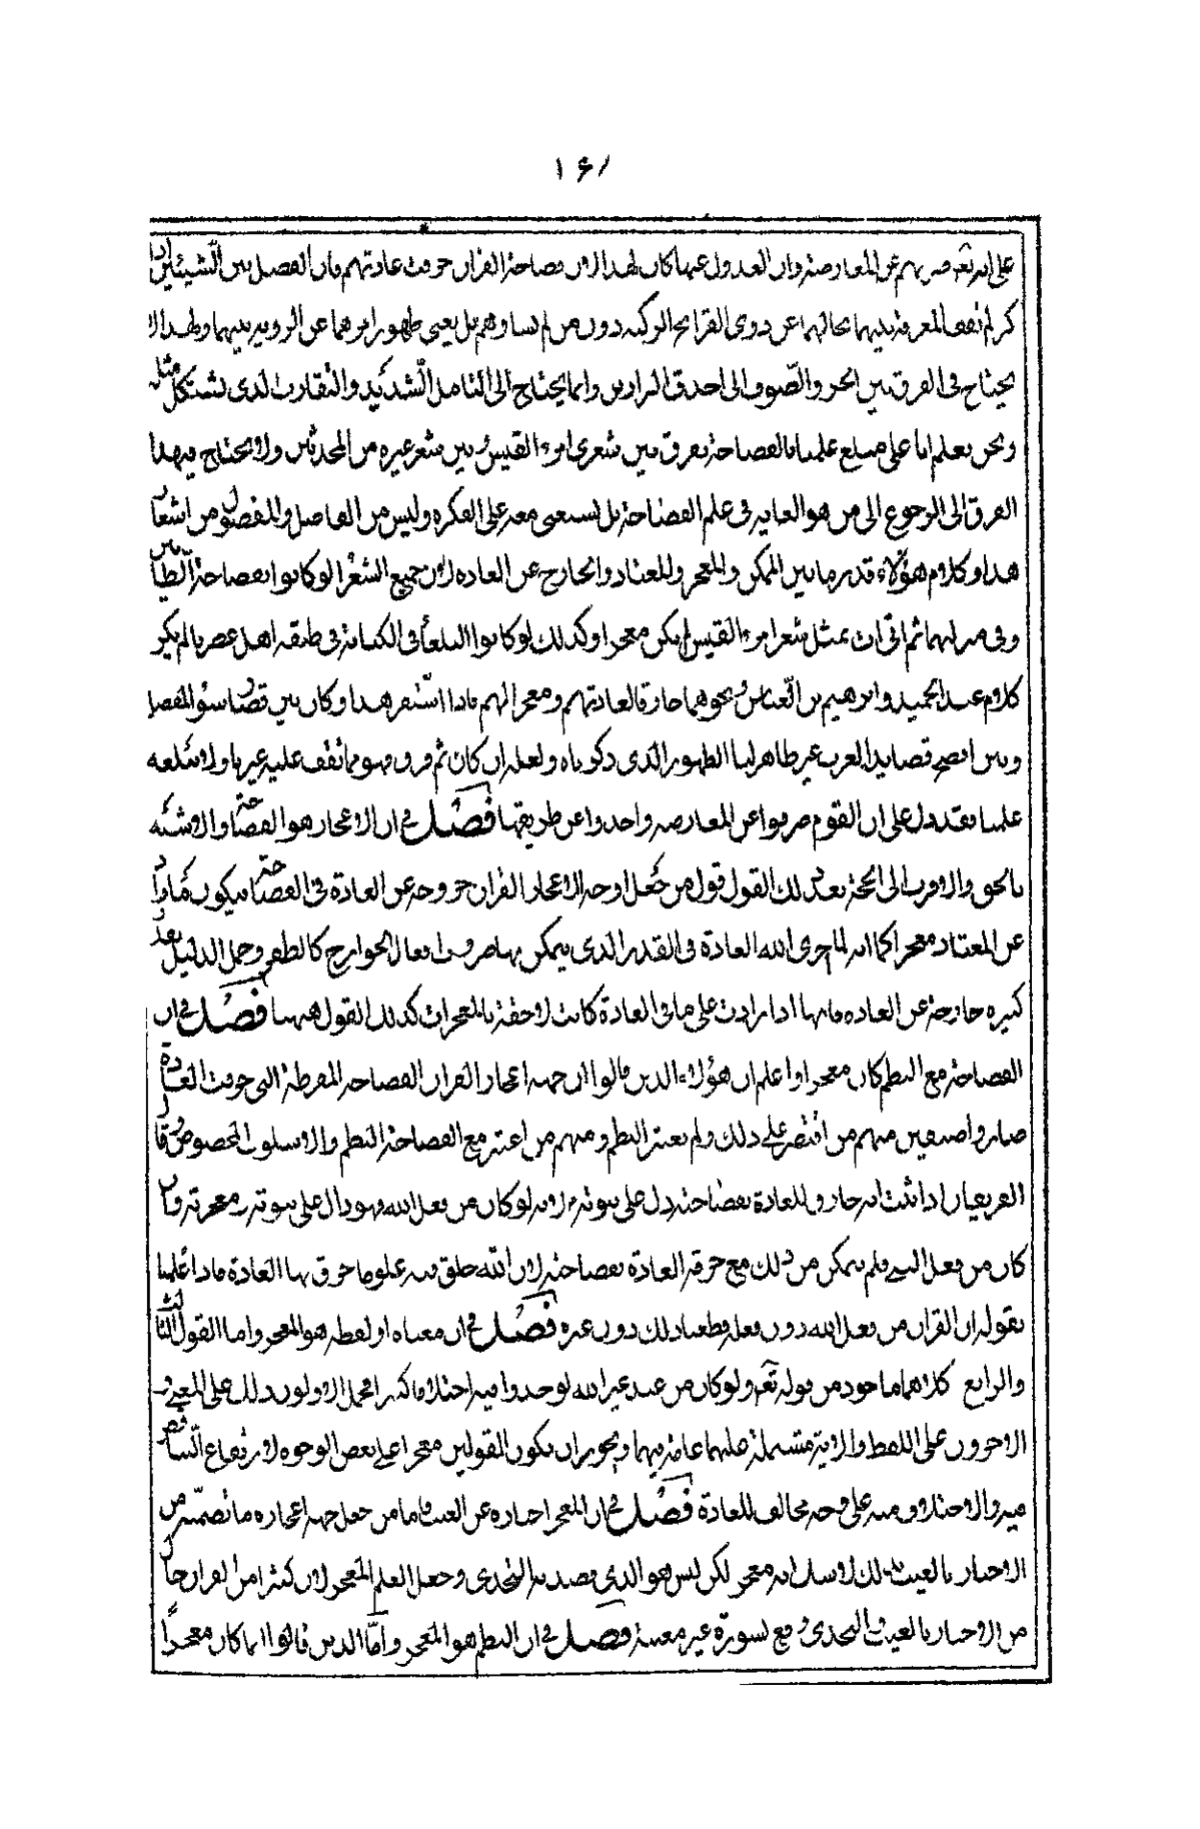 ١٤١
على انه تعالى صرفهم عن المعارضة وان العدول عنها كان لهذا لان فصاحة القران خرقت عادتهم فان الفصل بين الشيئين اذا
كثر لم تقف المعرفة بينهما بحالهما على ذوى القرائح الزكية دون من لم يساوهم بل يغنى ظهور امرهما عن الروية بينهما ولهذا لا
يحتاج فى الفرق بين الخز والصوف الى احذق البزازين وانما يحتاج الى التامل الشديد والتقارب الذى يشتكل مثله
ونحن نعلم انا على مبلغ علمنا بالفصاحة نفرق بين شعر امرء القيس وبين شعر غيره من المحدثين ولا نحتاج فى هذا
الفرق الى الرجوع الى من هو الغاية فى علم الفصاحة بل نستغنى معه على الفكرة وليس من الفاضل والمفضول من اشعار
هذا وكلام هؤلاء قدر ما بين الممكن والمعجز والمعتاد والخارج عن العادة لان جميع الشعراء لو كانوا بفصاحة الطائيين
وفى منزلتهما ثم اتى ات بمثل شعر امرء القيس لم يكن معجزا وكذلك لو كانوا البلغاء فى الكتابة فى طبقة اهل عصرنا لم يكن
كلام عبد الحميد وابراهيم بن العباس ونحوهما خارقا لعادتهم ومعجزا لهم فاذا استقر هذا وكان بين قصار سور المفصل
وبين افصح قصايد العرب غير ظاهر لنا الظهور الذى ذكرناه ولعله ان كان ثم فرق فهو مما تقف عليه غيرنا ولا يبلغه
علمنا فقد دل على ان القوم صرفوا عن المعارضة واخذوا عن طريقها فصل فى ان الاعجاز هو الفصاحة والاشبه
بالحق والاقرب الى الحجة بعد ذلك القول قول من جعل وجه الاعجاز القران خروجه عن العادة فى الفصاحة فيكون ما زاد
عن المعتاد معجزا كما انه لما اجرى الله العادة فى القدر الذى يتمكن بها من ضروب افعال الجوارح كالطفر وحمل الثقيل بقدر
كثيرة خارجة عن العادة فانها اذا زادت على ما فى العادة كانت لاحقة بالمعجزات كذلك القول ههنا فصل فى ان
الفصاحة مع النظم كان معجزا واعلم ان هؤلاء الذين قالوا ان جهة اعجاز القران الفصاحة المفرطة التى خرقت العادة
صاروا صنفين منهم من اقتصر على ذلك ولم يعتبر النظم ومنهم من اعتبر مع الفصاحة النظم والاسلوب المخصوص وقال
الفريقان اذا ثبت انه خارق للعادة بفصاحته دل على نبوته لانه لو كان من فعل الله فهو دال على نبوته ومعجزته وان
كان من فعل النبى فلم يتمكن من ذلك مع خرقه العادة بفصاحته لان الله خلق فيه علوما خرق بها العادة فاذا علمنا
بقوله ان القران من فعل الله دون فعله قطعنا ذلك دون غيره فصل فى ان معناه او لفظه هو المعجز واما القول الثالث
والرابع كلاهما ماخوذ من قوله تعالى ولو كان من عند غير الله لوجدوا فيه اختلافا كثيرا فحمل الاولون ذلك على المعنى و
الاخرون على اللفظ والاية مشتملة عليهما عامة فيهما ويجوز ان يكون القولين معجزا على بعض الوجوه لارتفاع التناقض
فيه والاختلاف منه على وجه مخالف للعادة فصل فى ان المعجز اخباره عن الغيب فاما من جعل جهة اعجازه ما تضمنه من
الاخبار بالغيب فذلك لا شك انه معجز لكن ليس هو الذى قصد به التحدى وجعل العلم المعجز لان كثيرا من القران خال
من الاخبار بالغيب والتحدى وقع بسورة غير معينة فصل فى ان النظم هو المعجز واما الذين قالوا انما كان معجزا